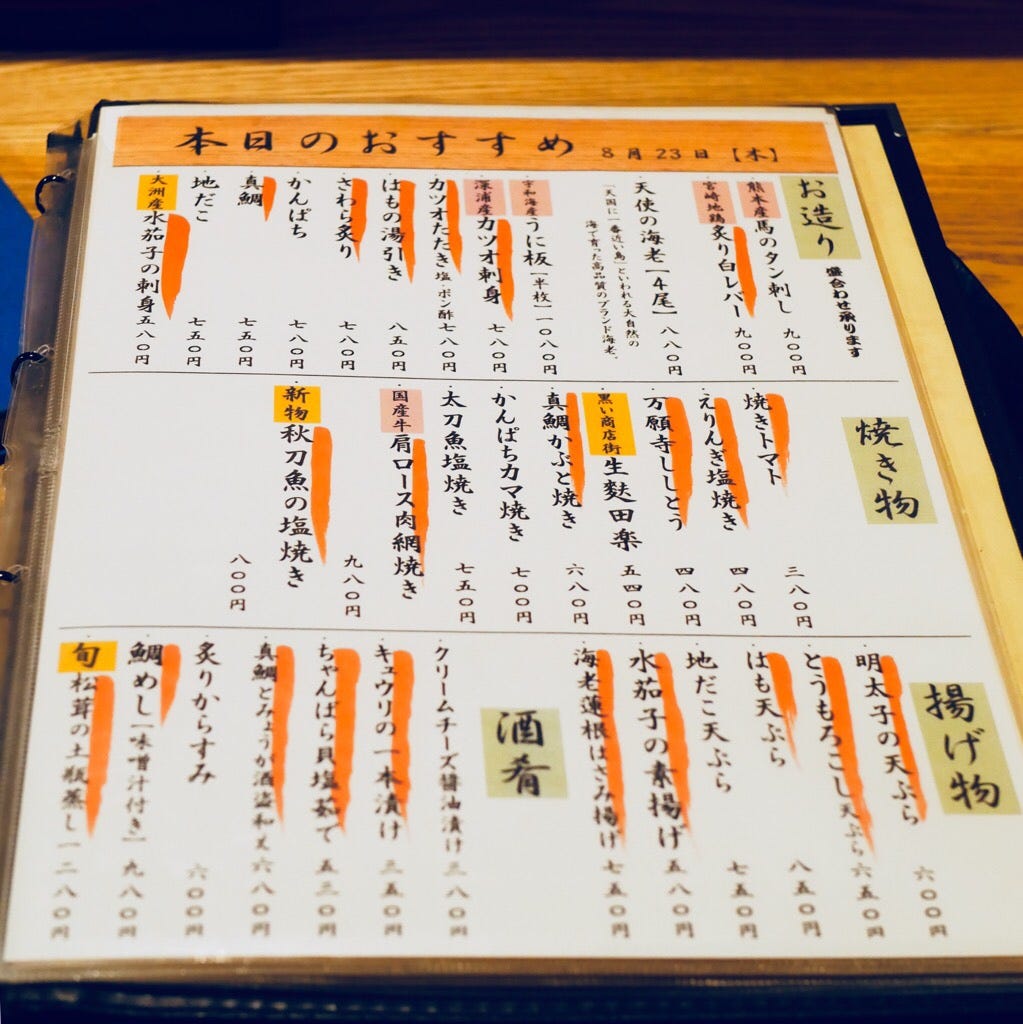 本日のおすすめ 8月23日【木】
お造り 盛合わせ承ります
熊本産 馬のタン刺し 九〇〇円
宮崎地鶏 炙り白レバー 九〇〇円
天使の海老【4尾】 八八〇円
【天国に一番近い島】といわれる大自然の
海で育った高品質のブランド海老。
宇和海産 うに板【半枚】 一〇八〇円
深浦産 カツオ刺身 七八〇円
カツオたたき 塩・ポン酢 七八〇円
はもの湯引き 八五〇円
さわら炙り 七八〇円
かんぱち 七八〇円
真鯛 七五〇円
地だこ 七五〇円
大洲産 水茄子の刺身 五八〇円
焼き物
焼きトマト 三八〇円
えりんぎ塩焼き 四八〇円
万願寺ししとう 四八〇円
黒い商店街 生麩田楽 五四〇円
真鯛かぶと焼き 六八〇円
かんぱちカマ焼き 七〇〇円
太刀魚塩焼き 七五〇円
国産牛 肩ロース肉網焼き 九八〇円
新物 秋刀魚の塩焼き 八〇〇円
揚げ物
明太子の天ぷら 六〇〇円
とうもろこし天ぷら 六五〇円
はも天ぷら 八五〇円
地だこ天ぷら 七五〇円
水茄子の素揚げ 五八〇円
海老蓮根はさみ揚げ 七五〇円
酒肴
クリームチーズ醤油漬け 三八〇円
キュウリの一本漬け 三五〇円
ちゃんばら貝塩茹で 五三〇円
真鯛とみょうが酒盗和え 六八〇円
炙りからすみ 六〇〇円
鯛めし【味噌汁付き】 九八〇円
旬 松茸の土瓶蒸し 一二八〇円